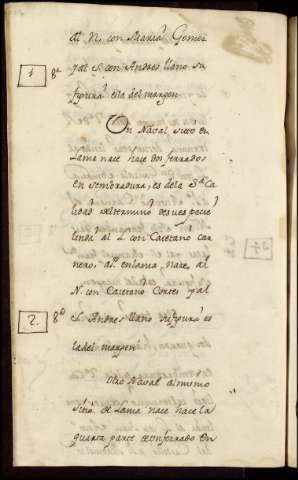 al N. con Maria Gomez
y al S. con Andres llano su
1 8a figura esla del margen
Un Naval sitto en
Lama nace hace dos ferrados
en sembradura, es dela 3a Ca
lidad
linda al L con Caietano Car
nero, al P. en lama nace, al
N. con Caietano Cortes y al
2. 8a S. Andres llano su figura es
la del margen
Otro Naval al mismo
Sitio de Lama nace hace la
quarta parte de un ferrado en